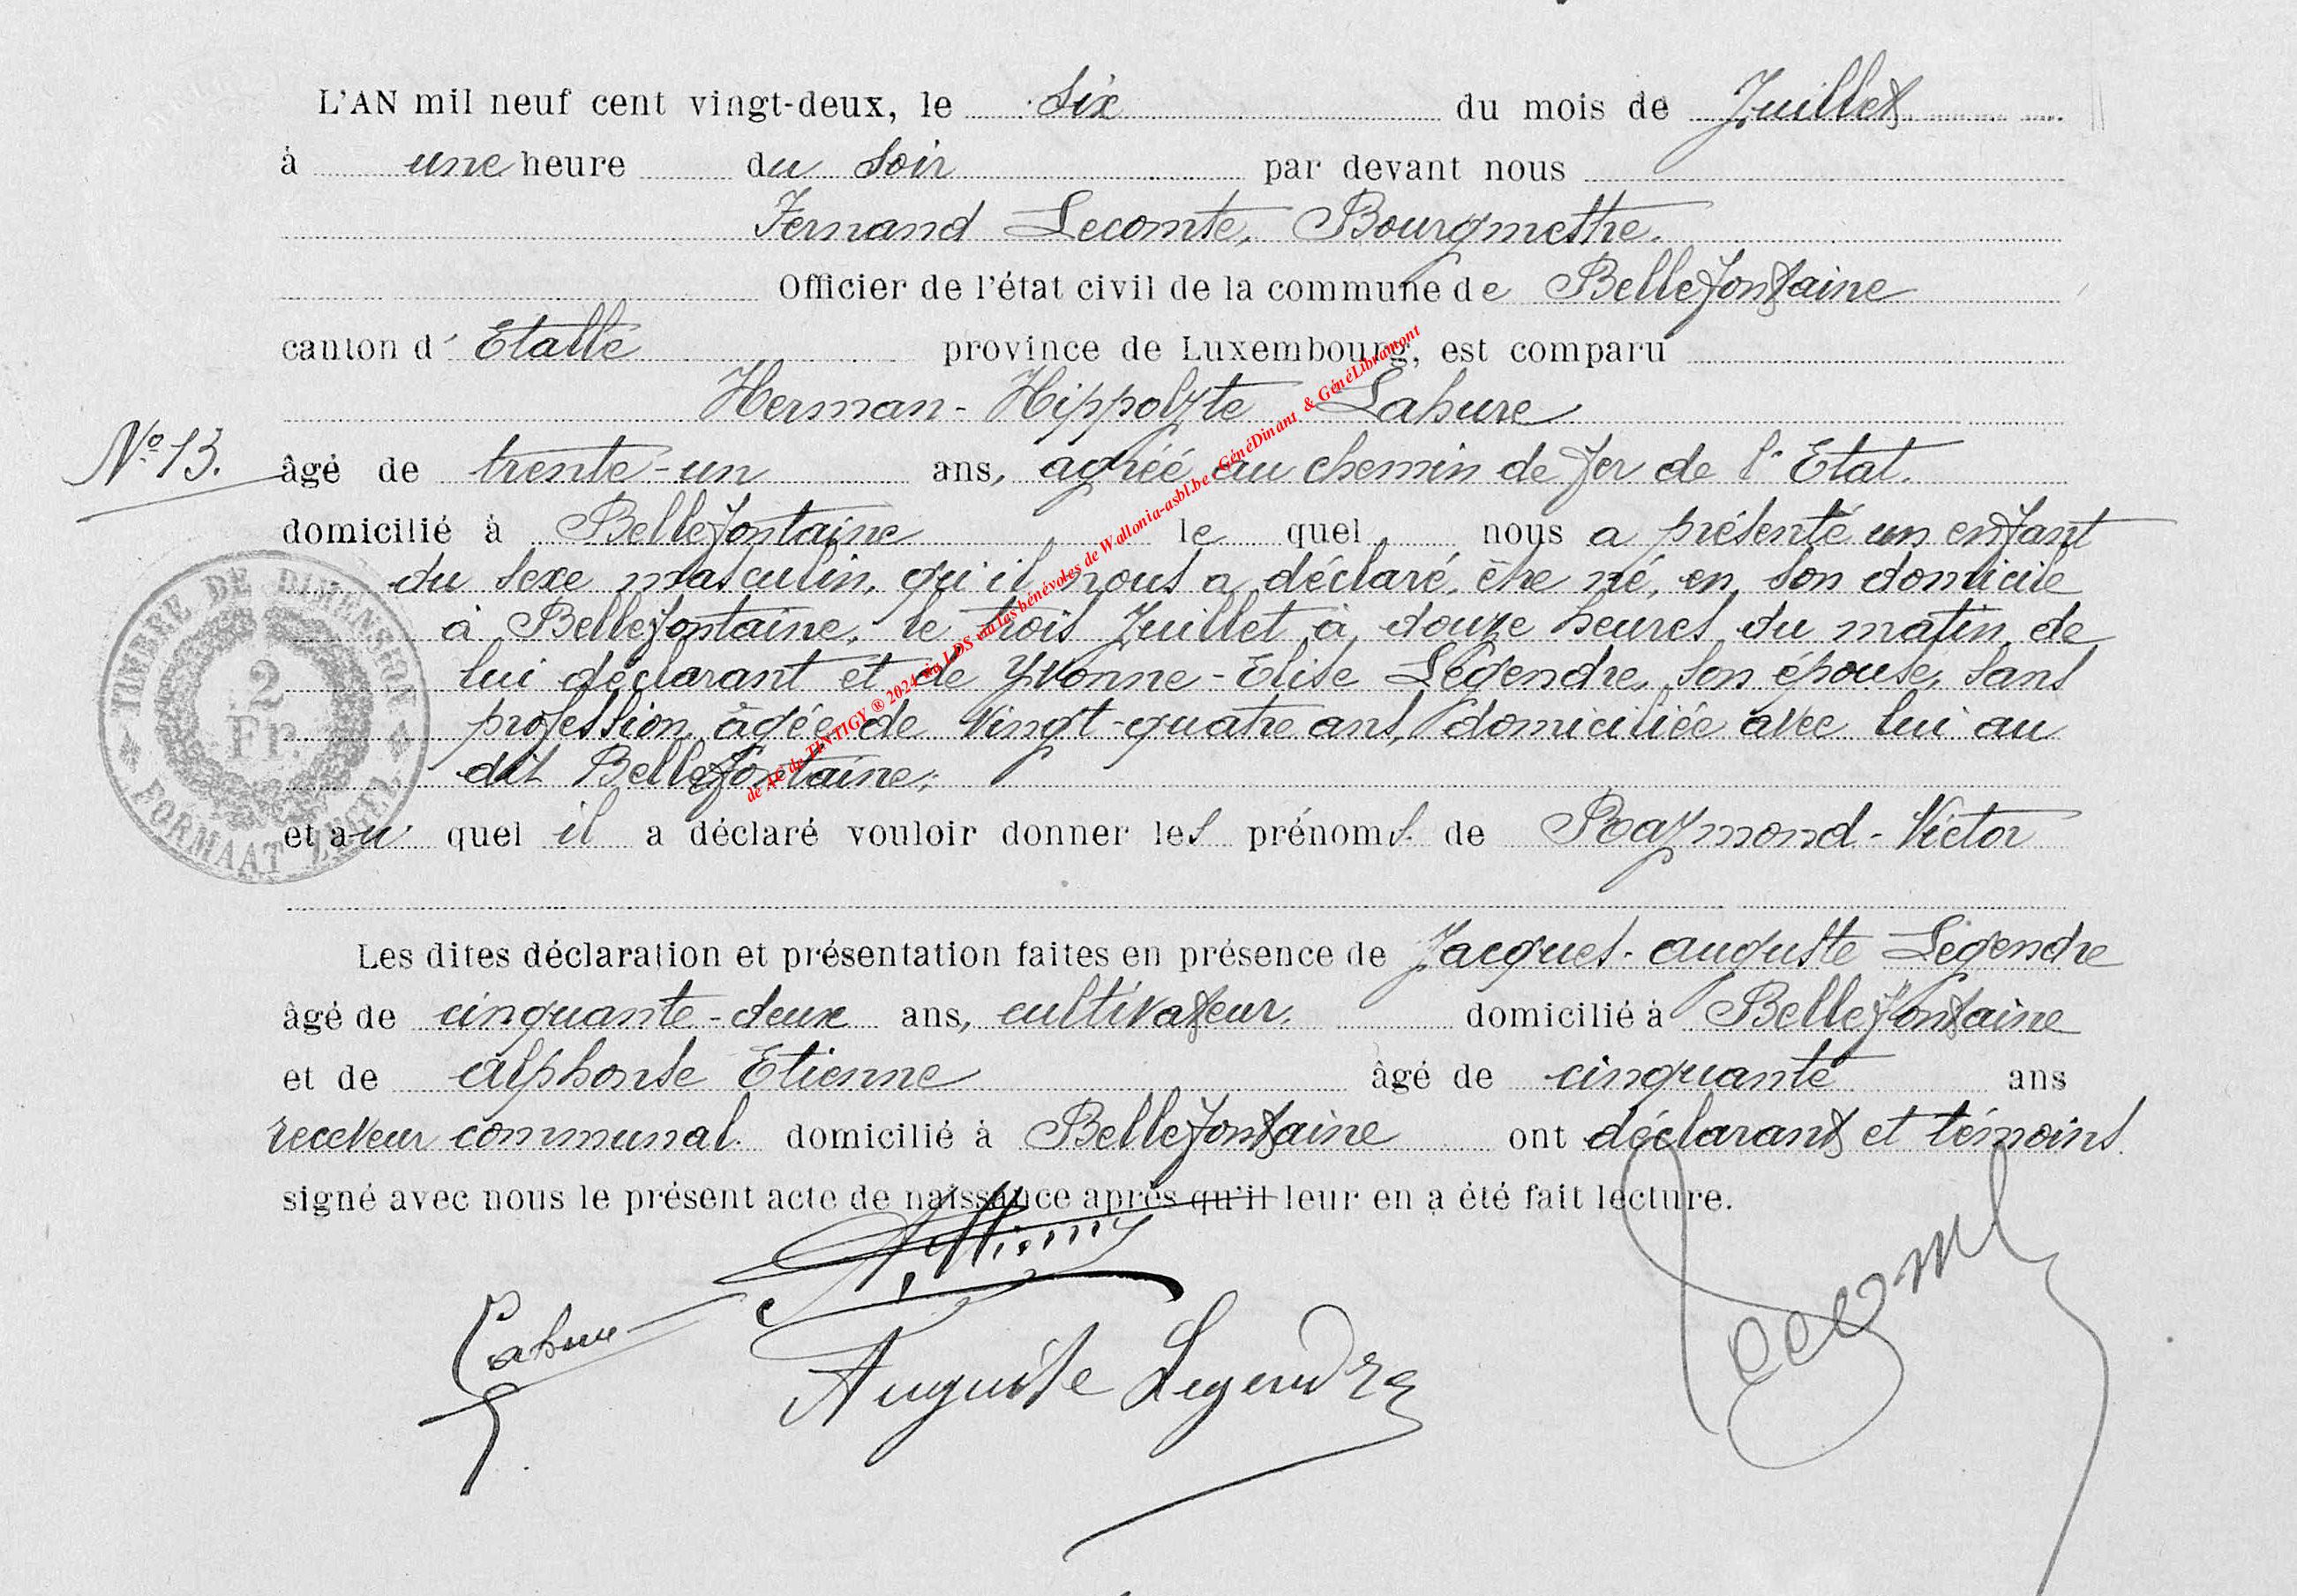 L'AN mil neuf cent vingt-deux, le six du mois de Juillet
à une heure du soir par devant nous
Fernand Lecomte, Bourgmestre.
Officier de l'état civil de la commune de Bellefontaine
canton d' Etalle province de Luxembourg, est comparu
Herman-Hippolyte Lahure
N° 13.
âgé de trente-un ans, agréé au chemin de fer de l'Etat.
domicilié à Bellefontaine le quel nous a présenté un enfant
du sexe masculin, qu'il nous a déclaré, être né, en son domicile
à Bellefontaine, le trois Juillet à douze heures du matin, de
lui déclarant et de Yvonne-Elise Legendre, son épouse, sans
profession, âgée de vingt-quatre ans, domiciliée avec lui au
dit Bellefontaine;
et au quel il a déclaré vouloir donner les prénoms de Raymond-Victor
Les dites déclaration et présentation faites en présence de Jacques-auguste Legendre
âgé de cinquante-deux ans, cultivateur. domicilié à Bellefontaine
et de alphonse Etienne âgé de cinquante ans
receveur communal. domicilié à Bellefontaine ont déclarant et témoins
signé avec nous le présent acte de naissance après qu'il leur en a été fait lecture.
Lahure
Auguste Legendre
TIMBRE DE DIMENSION
2
Fr.
FORMAAT ZEGEL
de AC de TINTIGY ® 2024 via LDS via les bénévoles de Wallonia-asbl.be - GénéDinant & GénéLibramont